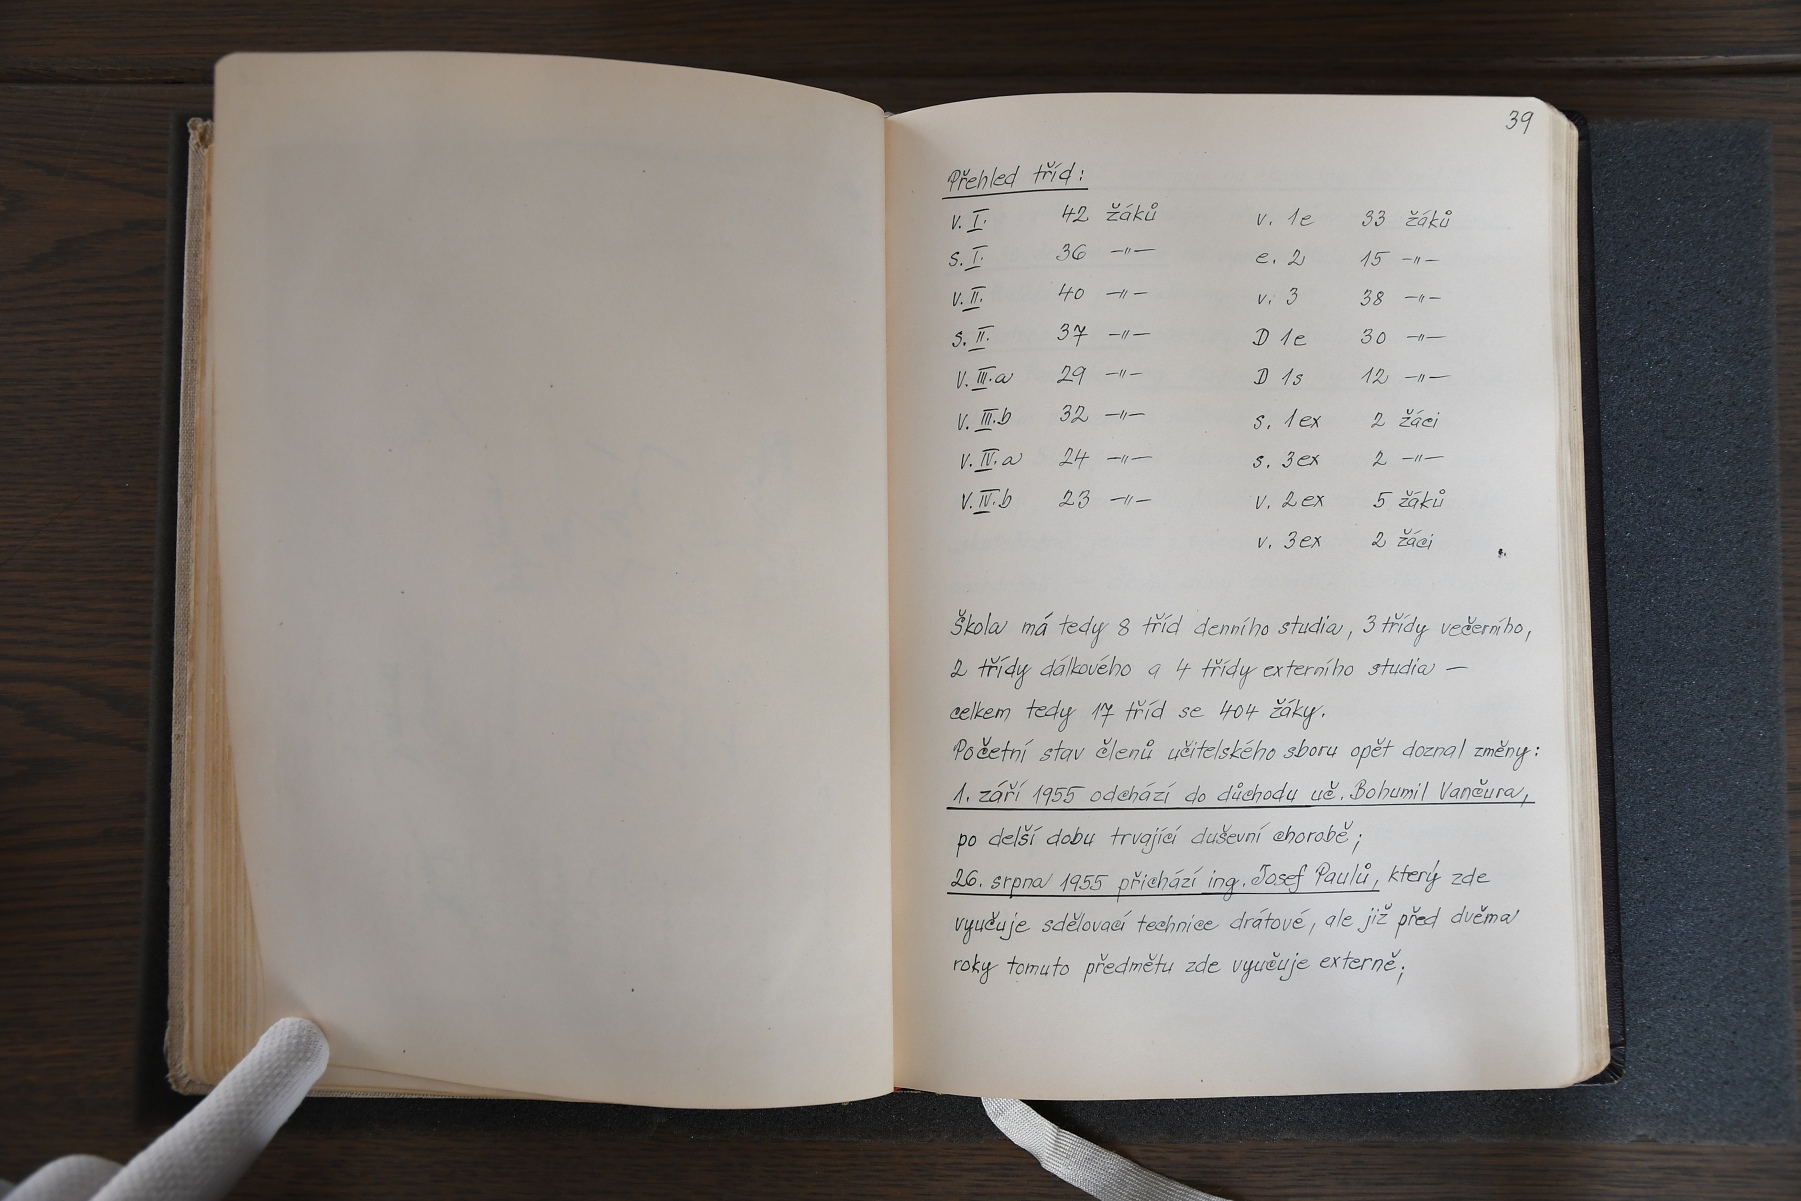 39
Přehled tříd:
v. I. 42 žáků v. 1e 33 žáků
s. I. 36 —"— e. 2 15 —"—
v. II. 40 —"— v. 3 38 —"—
s. II. 37 —"— D 1e 30 —"—
v. III.a 29 —"— D 1s 12 —"—
v. III.b 32 —"— s. 1ex 2 žáci
v. IV.a 24 —"— s. 3ex 2 —"—
v. IV.b 23 —"— v. 2ex 5 žáků
v. 3ex 2 žáci
Škola má tedy 8 tříd denního studia, 3 třídy večerního,
2 třídy dálkového a 4 třídy externího studia —
celkem tedy 17 tříd se 404 žáky.
Početní stav členů učitelského sboru opět doznal změny:
1. září 1955 odchází do důchodu uč. Bohumil Vančura,
po delší dobu trvající duševní chorobě;
26. srpna 1955 přichází ing. Josef Paulů, který zde
vyučuje sdělovací technice drátové, ale již před dvěma
roky tomuto předmětu zde vyučuje externě;